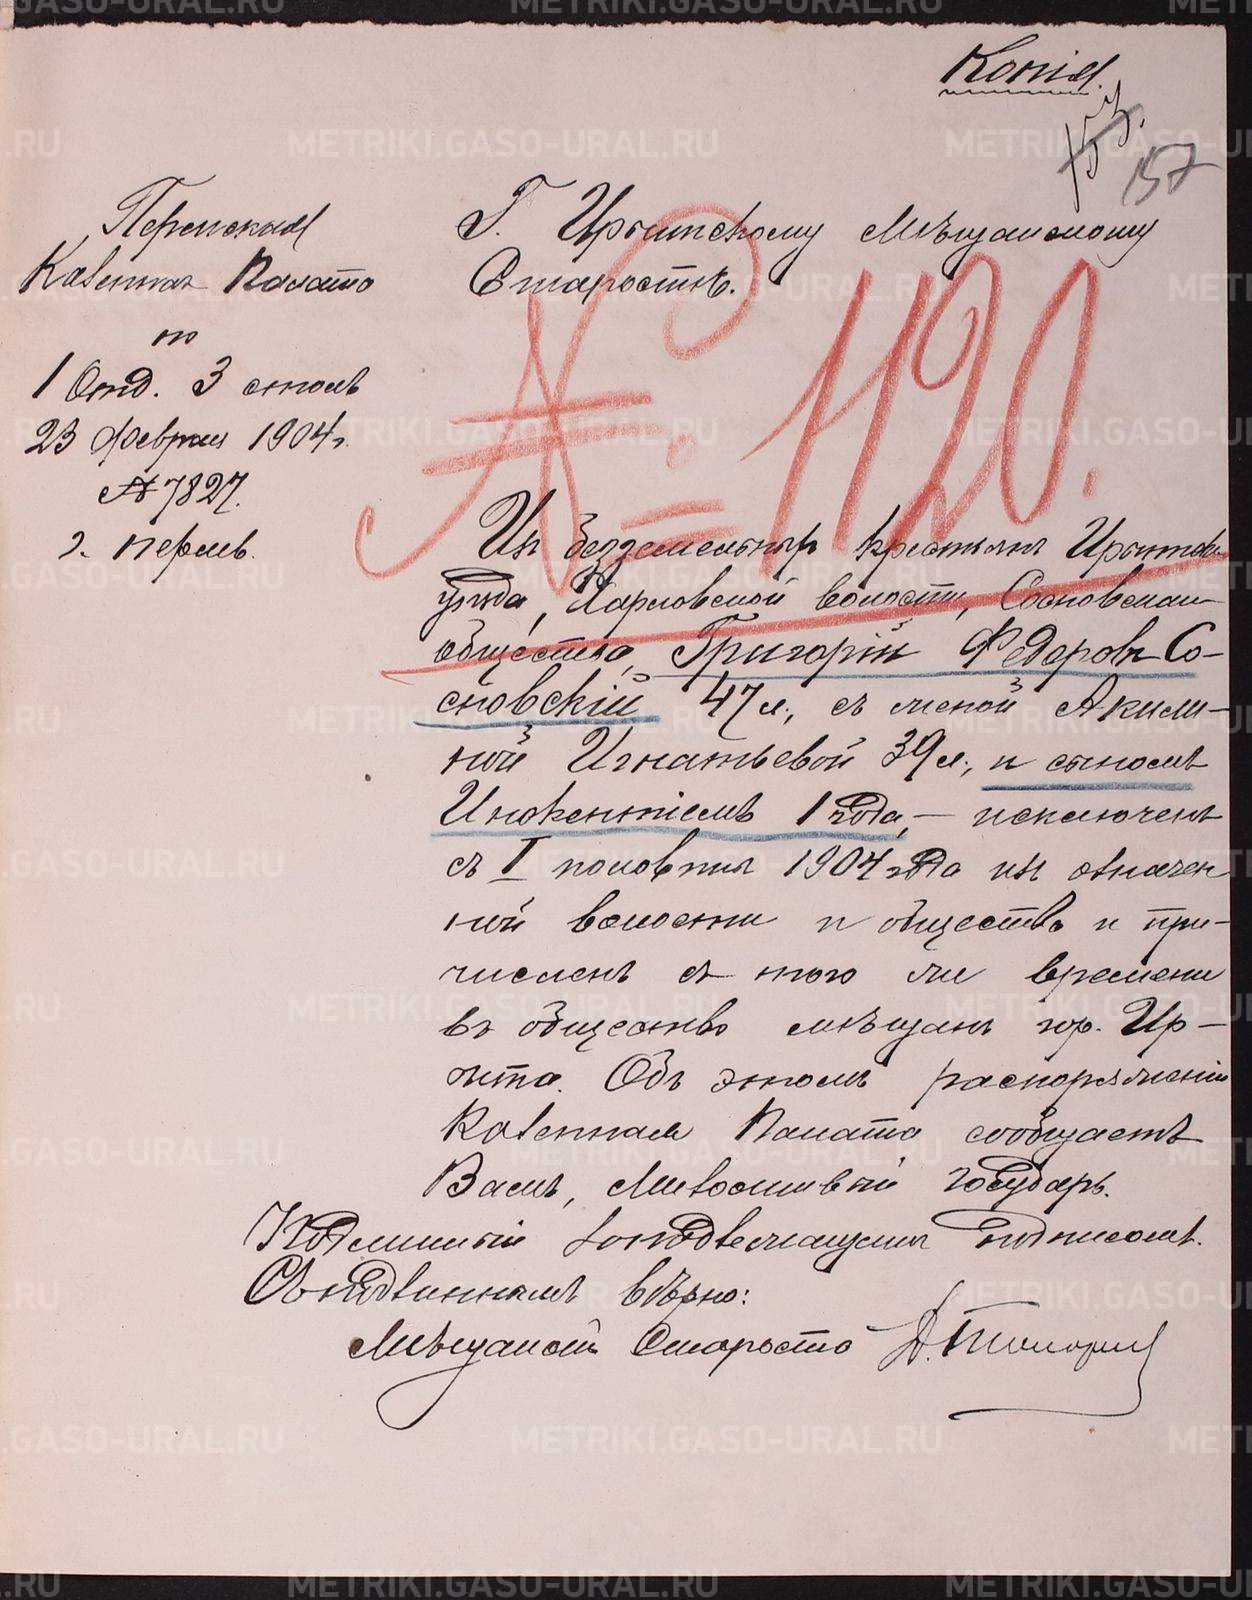 Копія.
153.
157
Пермская
Казенная Палата
по
1 Отд. 3 столъ
23 Февраля 1904 г.
№ 7827.
г. Пермь.
Г. Ирбитскому Мѣщанскому
Старостѣ.
№ 1120.
Изъ безземельныхъ крестьянъ Ирбитск.
уѣзда, волости, Сосновскаго
общества, Григорій Федоровъ Со-
сновскій 47 л., съ женой Акили-
ной Игнатьевой 39 л., и сыномъ
Инокентіемъ 1 года, — исключенъ
съ I половины 1904 года изъ означен
ной волости и общества и при-
численъ съ того же времени
въ общество мѣщанъ гор. Ир-
бита. Объ этомъ распоряженіи
Казенная Палата сообщаетъ
Вамъ, Милостивый Государь.
Подлинный за надлежащимъ подписомъ.
Съ подлиннымъ вѣрно:
Мѣщанскій Староста
METRIKI.GASO-URAL.RU